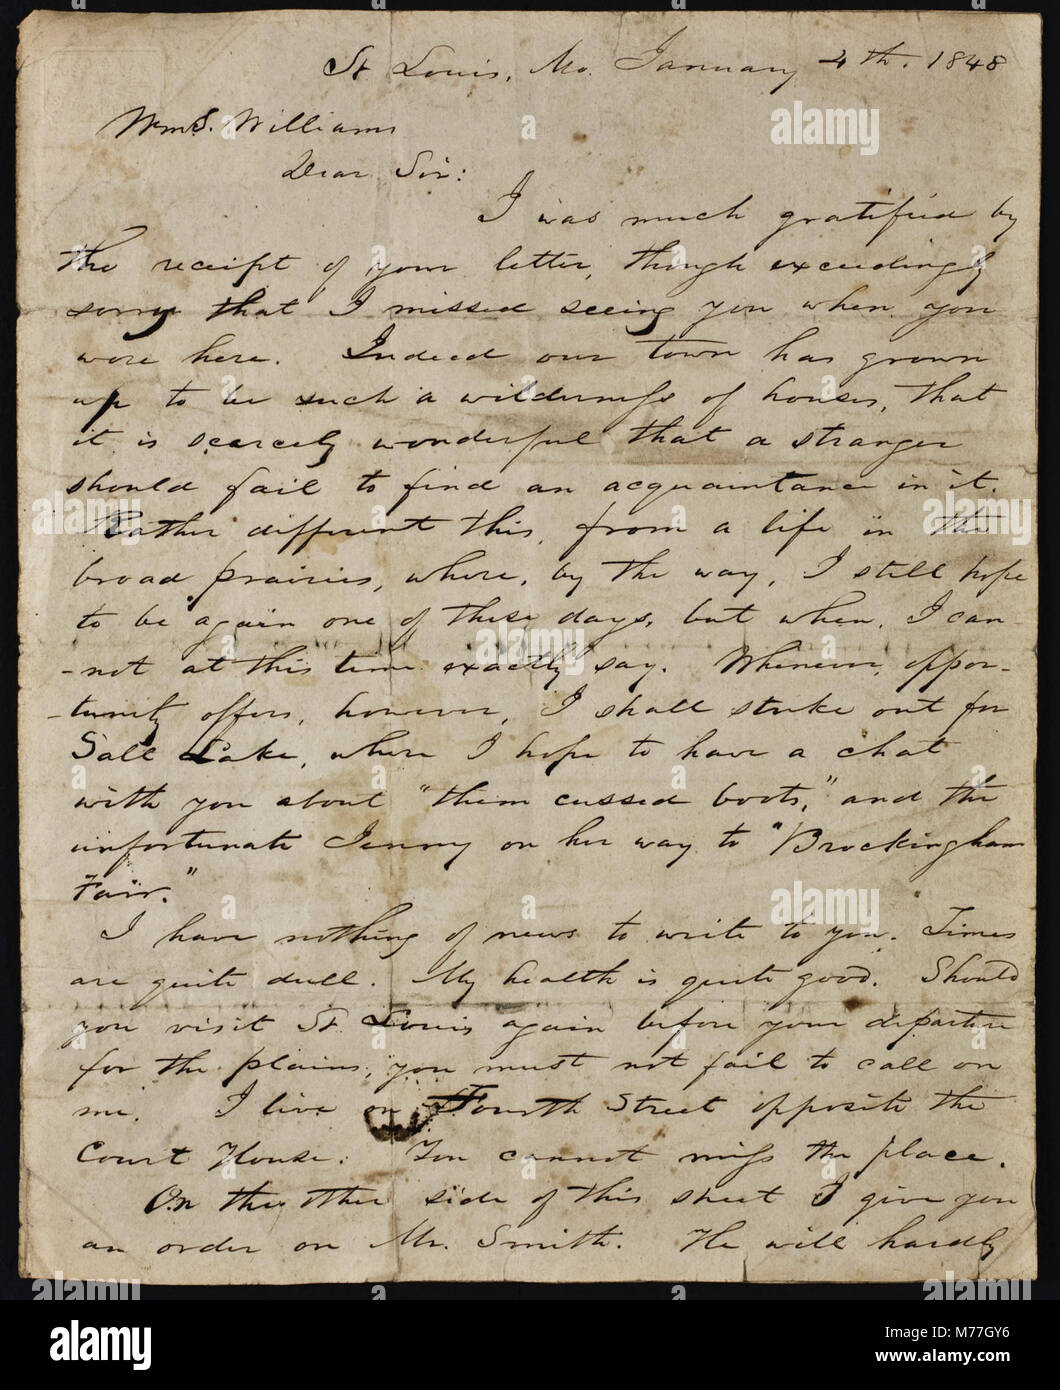 St Louis, Mo. January 4th. 1848
Wm S. Williams
Dear Sir:
I was much gratified by
the receipt of your letter, though exceedingly
sorry that I missed seeing you when you
were here. Indeed our town has grown
up to be such a wilderness of houses, that
it is scarcely wonderful that a stranger
should fail to find an acquaintance in it.
Rather different this, from a life in the
broad prairies, where, by the way, I still hope
to be again one of these days, but when, I can-
-not at this time exactly say. Whenever, oppor-
-tunity offers, however, I shall strike out for
Salt Lake, where I hope to have a chat
with you about "them cussed boots," and the
unfortunate Jenny on her way to "Brockingham
Fair."
I have nothing of news to write to you. Times
are quite dull. My health is quite good. Should
you visit St. Louis again before your departure
for the plains, you must not fail to call on
me. I live on Fourth Street opposite the
Court House. You cannot miss the place.
On the other side of this sheet I give you
an order on Mr. Smith. He will hardly
alamy
a
alamy stock photo
M77GY6
www.alamy.com